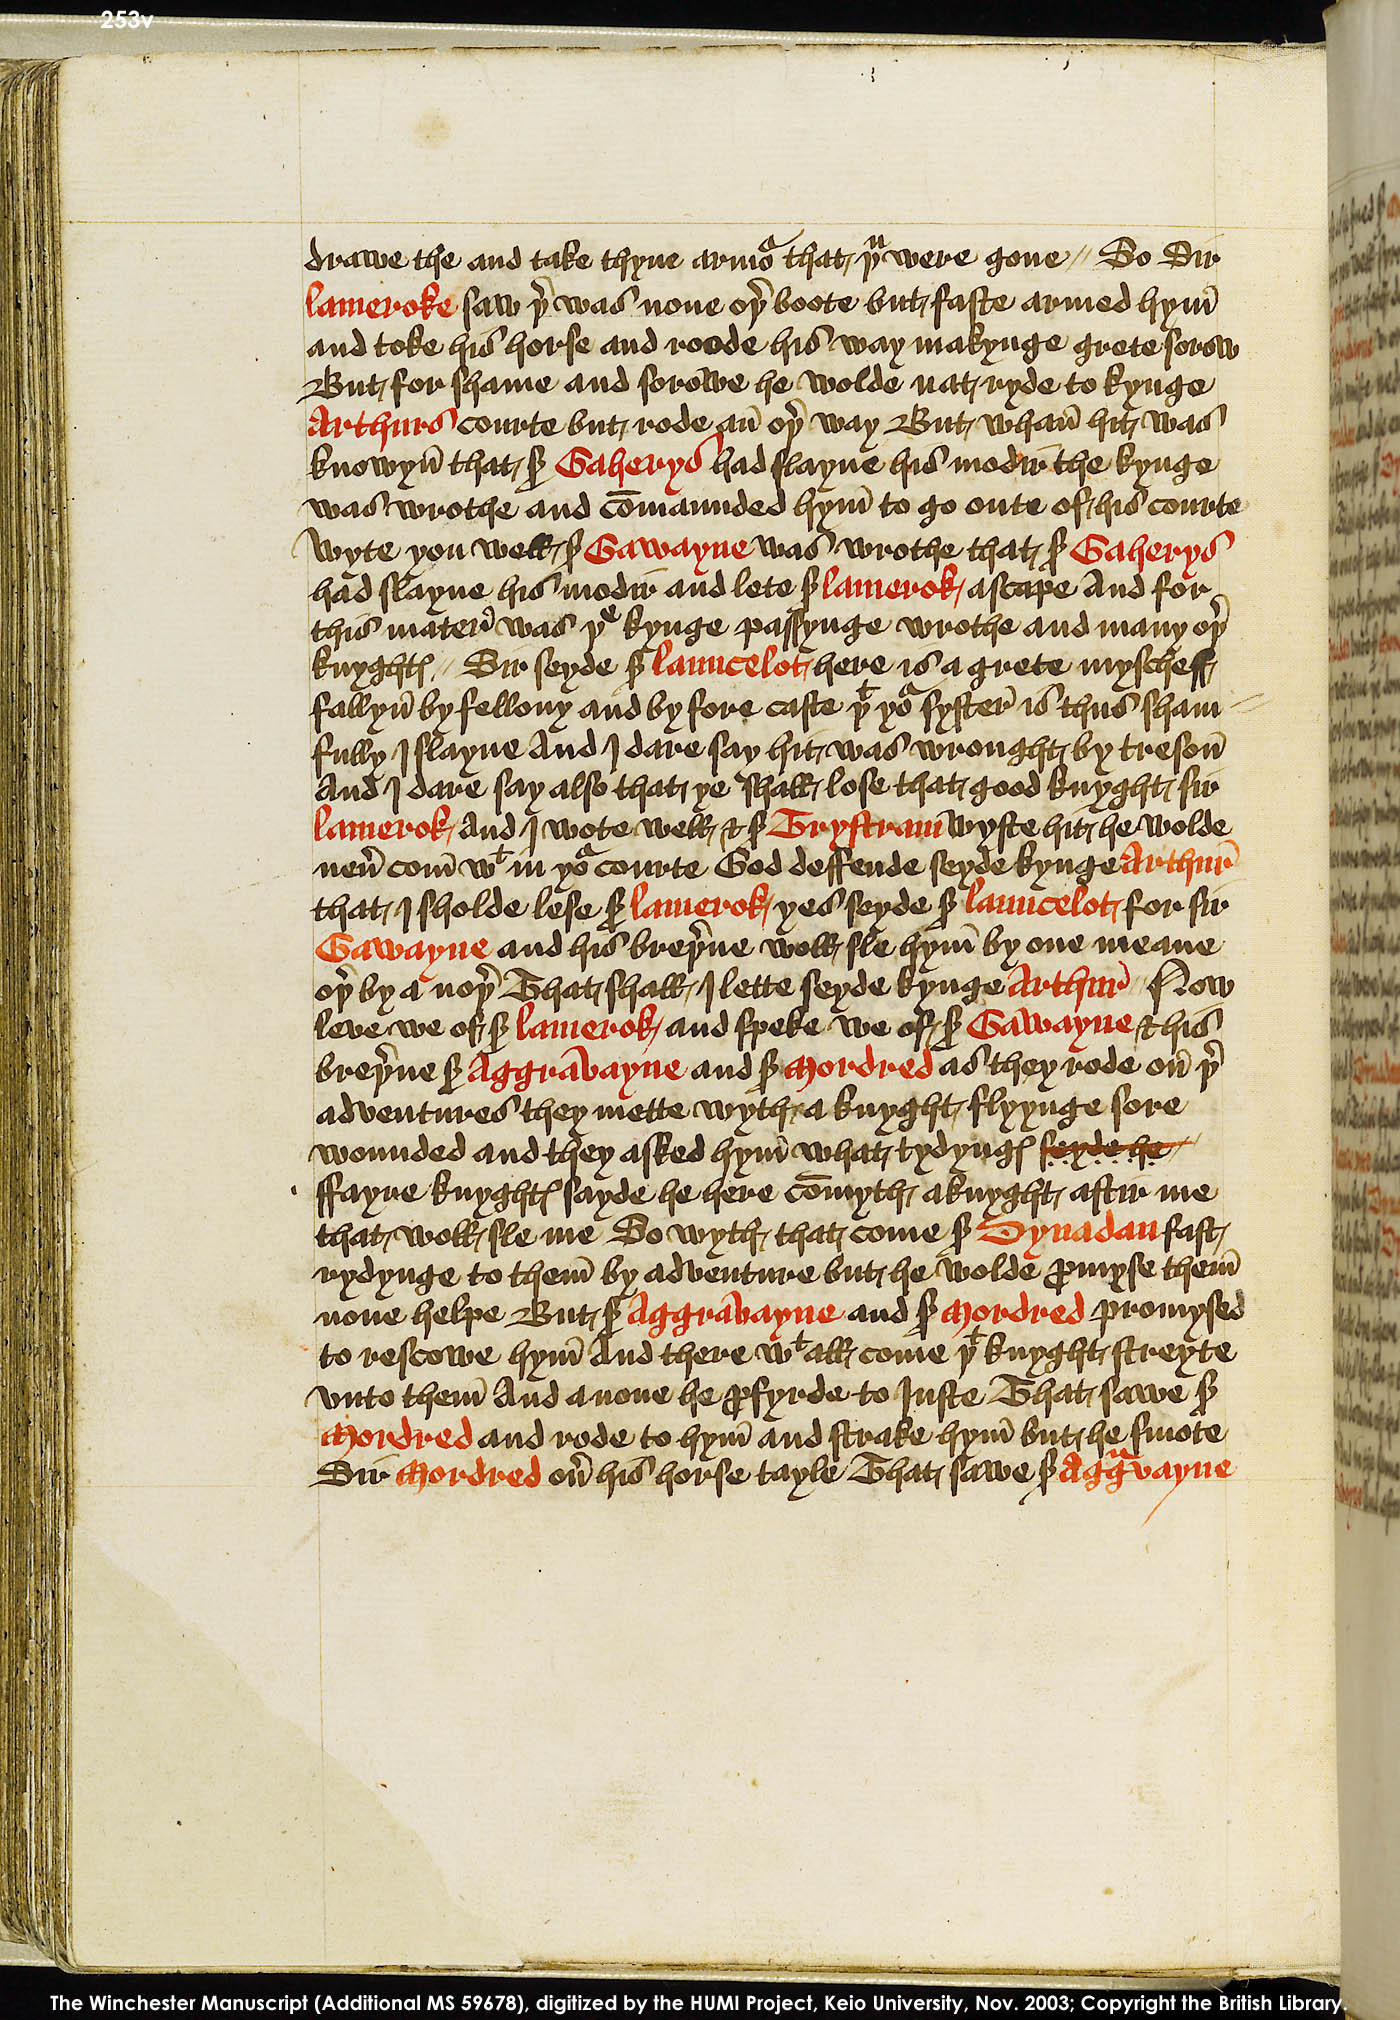 253v
drawe the and take thyne armoᵃ that þⁿ were gone // So Sir
lameroke saw þ̉ was none oþ̉ boote but faste armed hym̄
and toke his horse and roode his way makynge grete sorow
But for shame and sorowe he wolde nat ryde to kynge
Arthurs courte but rode an̄ oþ̉ way But whan̄ hit was
knowyn̄ that sꝰ Gaherys had slayne his modir the kynge
was wrothe and cōmaunded hym̄ to go oute of his courte
Wyte you well sꝰ Gawayne was wrothe that sꝰ Gaherys
had slayne his modir and lete sꝰ lamerok ascape And for
this mater̄ was þᵉ kynge passynge wrothe and many oþ̉
knyghtꝭ // Sir seyde sꝰ launcelot here is a grete myscheff
fallyn̄ by fellony and by fore caste þᵗ yoᵃ syster̄ is thus sham
fully I slayne And I dare say hit was wrought by treson̄
And I dare say also that ye shall lose that good knyght sir
lamerok And I wote well & sꝰ Trystram wyste hit he wolde
neu̓ com̄ wᵗ in yoᵃ courte God deffende seyde kynge Arthur̄
that I sholde lese sꝰ lamerok yes seyde sꝰ launcelot for sir
Gawayne and his breþ̉ne woll sle hym̄ by one meane
oþ̉ by a noþ̉ That shall I lette seyde kynge Arthur̄ // Now
leve we of sꝰ lamerok and speke we of sꝰ Gawayne & his
breþ̉ne sꝰ Aggravayne and sꝰ Mordred as they rode on̄ þ̉
adventures they mette wyth a knyght flyynge sore
wounded and they asked hym̄ what tydyngꝭ seyde he
ffayre knyghtꝭ sayde he here cōmyth a knyght aftir me
that woll sle me So wyth that come sꝰ Dynadan fast
rydynge to them̄ by adventure but he wolde ꝓmyse them̄
none helpe But sꝰ Aggravayne and sꝰ Mordred promysed
to rescowe hym̄ And there wᵗ all come þᵗ knyght streyte
vnto them̄ And a none he ꝓfyrde to Juste That sawe sꝰ
Mordred and rode to hym̄ and strake hym̄ but he smote
Sir Mordred ou̓ his horse tayle That sawe sꝰ Aggᵃvayne
The Winchester Manuscript (Additional MS 59678), digitized by the HUMI Project, Keio University, Nov. 2003; Copyright the British Library.